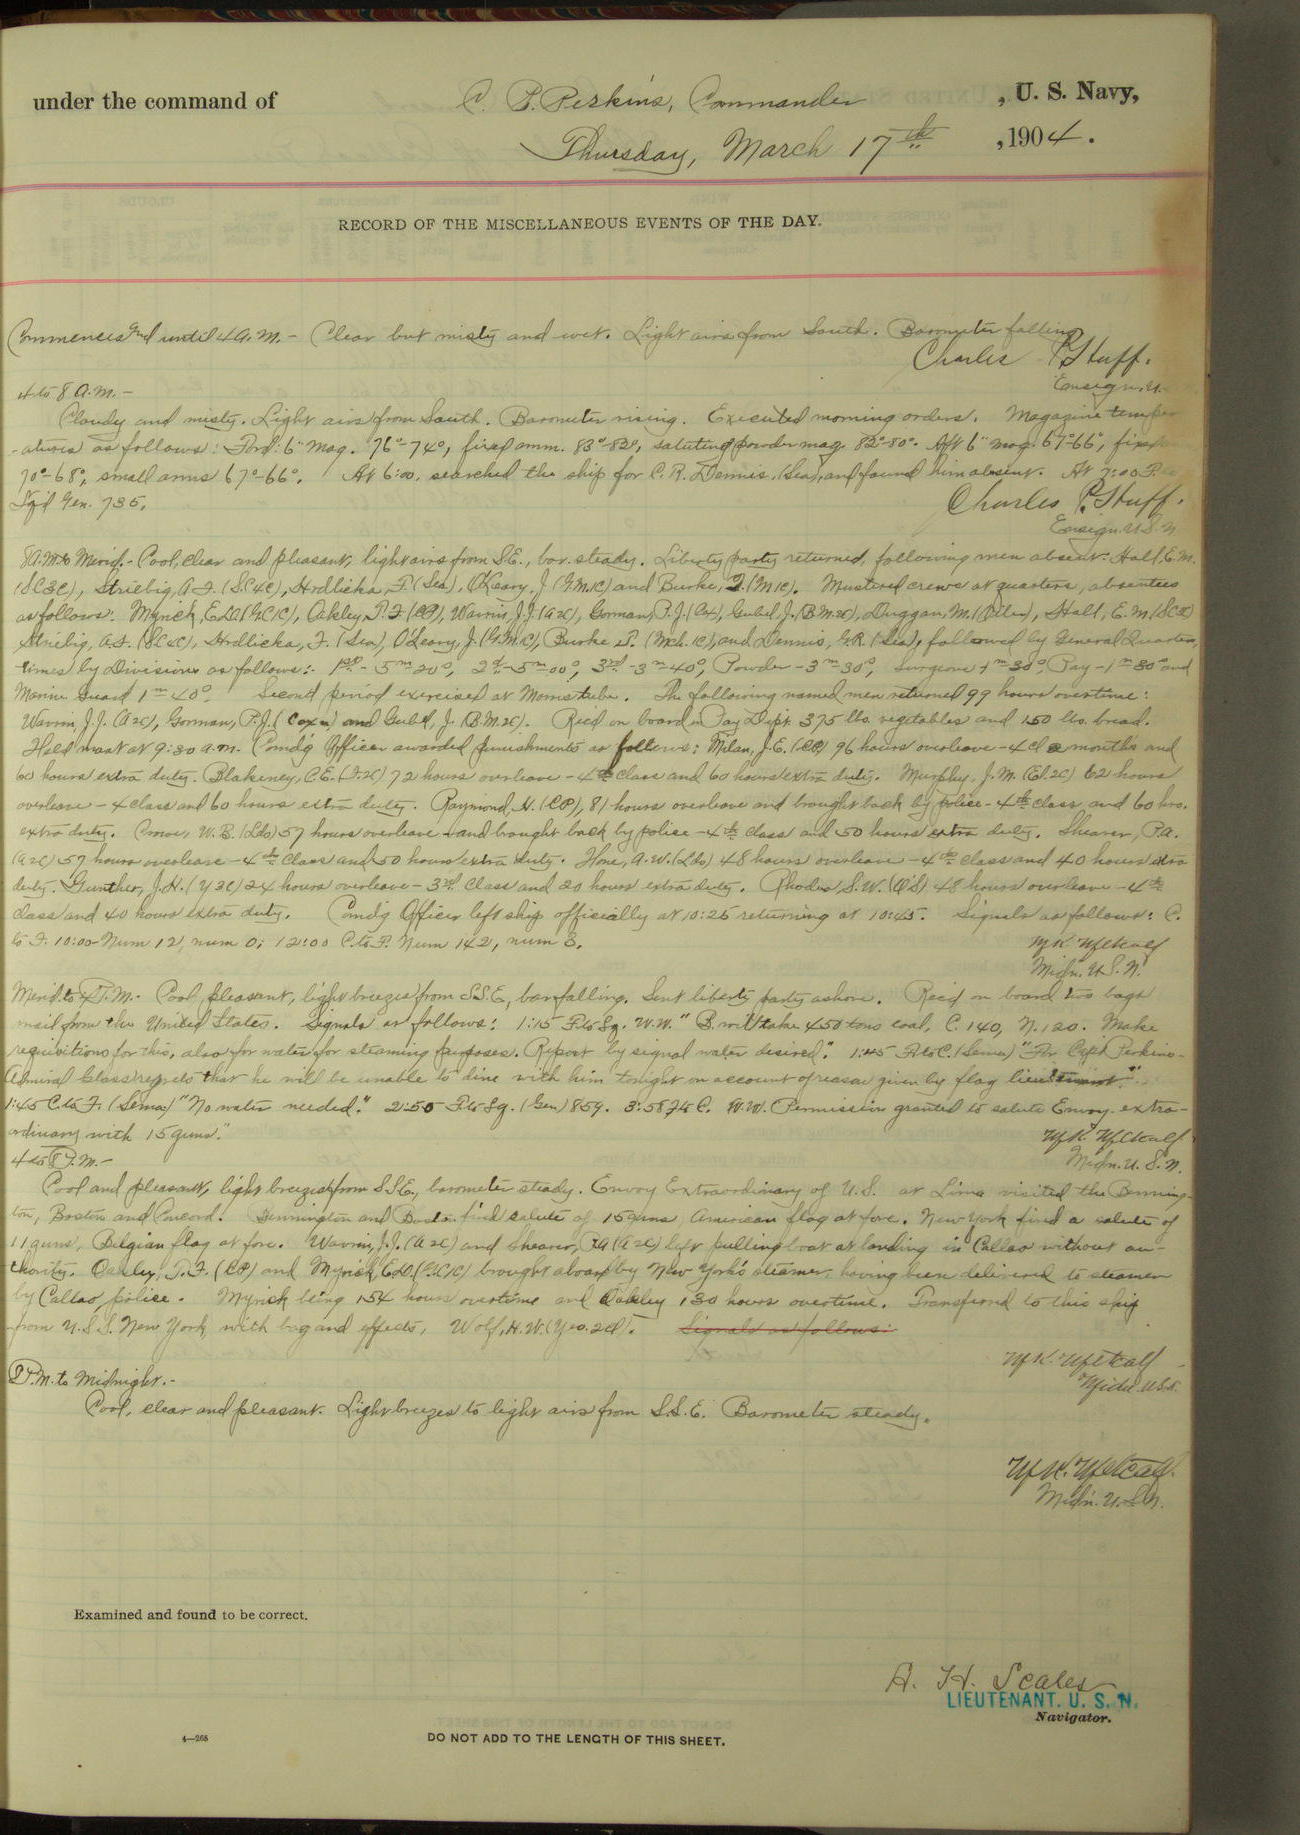 under the command of C. P. Perkins, Commander , U. S. Navy,
Thursday, March 17th , 1904.
RECORD OF THE MISCELLANEOUS EVENTS OF THE DAY.
Commences and until 4 A.M. - Clear but misty and wet. Light airs from South. Barometer falling
Charles P. Huff.
Ensign, U.
4 to 8 A.M. -
Cloudy and misty. Light airs from South. Barometer rising. Executed morning orders. Magazine temper
-atures as follows: Ford. 6" mag. 76°-74°, fixed amm. 83°-82°, saluting powder mag. 82°-80°. Aft 6" mag. 67°-66°, fixed
70°-68°, small arms 67°-66°. At 6:00, searched the ship for C. R. Dennis, (Sea), and found him absent. At 7:00
Sq'd Gen. 735.
Charles P. Huff.
Ensign U.S.N
8 A.M. to Merid. - Cool, clear and pleasant, light airs from S.E., bar. steady. Liberty party returned, following men absent: Hall, E.M.
(SC3C), Striebig, A.F. (SC4C), Hrdlicka, F. (Sea), O'Leary, J. (G.M.1C) and Burke, T. (M1C). Mustered crew at quarters, absentees
as follows: Myrick, E.D. (G.C1C), Oakley, P.F. (CP), Warrin, J.J. (A2C), Gorman, P.J. (Cox), Guild, J. (B.M.2C), Duggan, M. (Oiler), Hall, E.M. (SC3C)
Striebig, A.F. (SC4C), Hrdlicka, F. (Sea), O'Leary, J. (G.M.1C), Burke, T. (Mch. 1C), and Dennis, G.R. (Sea), followed by General Quarters,
times by Divisions as follows: - 1st - 5m-20s, 2d - 5m-00s, 3rd - 3m-40s, Powder - 3m-30s, Surgeons 1m-30s, Pay - 1m-30s and
Marine Guard 1m-40s. Second period exercised at Morris tube. The following named men returned 99 hours overtime:
Warrin J.J. (A2C), Gorman, P.J. (Cox'n) and Guild, J. (B.M.2C). Rec'd on board in Pay Dept. 375 lbs. vegetables and 150 lbs. bread.
Held mast at 9:30 a.m. Comd'g Officer awarded punishments as follows: Milan, J.E. (CP) 96 hours overleave - 4 Cl months and
60 hours extra duty. Blakeney, C.E. (F.2C) 72 hours overleave - 4th class and 60 hours extra duty. Murphy, J.M. (El.2C) 62 hours
overleave - 4 class and 60 hours extra duty. Raymond, H. (CP), 81 hours overleave and brought back by police - 4th class, and 60 hrs.
extra duty. W.B. (Lds) 57 hours overleave and brought back by police - 4th class and 50 hours extra duty. Shearer, P.A.
(A2C) 57 hours overleave - 4th class and 50 hours extra duty. Hone, A.W. (Lds) 48 hours overleave - 4th class and 40 hours extra
duty. Gunther, J.H. (Y3C) 24 hours overleave - 3rd class and 20 hours extra duty. Rhodes S.W. (O.S) 48 hours overleave - 4th
class and 40 hours extra duty. Comd'g Officer left ship officially at 10:25 returning at 10:45. Signals as follows: C.
to F. 10:00 Num 12, num 0; 12:00 C. to F. Num 142, num 3.
W.K. Metcalf
Midn. U.S.N.
Merid. to 4 P.M. - Cool, pleasant, light breezes from S.S.E., bar falling. Sent liberty party ashore. Rec'd on board two bags
mail from the United States. Signals as follows: 1:15 F. to Sq. W.W. "B. will take 450 tons coal, C. 140, N. 120. Make
requisitions for this, also for water for steaming purposes. Report by signal water desired." 1:45 F. to C. (Sema) "For Capt. Perkins -
Admiral Glass regrets that he will be unable to dine with him tonight on account of reason given by flag lieutenant."
1:45 C. to F. (Sema) "No water needed." 2:55 F. to Sq. (Gen) 859. 3:58 F. to C. W.W. Permission granted to salute Envoy extra-
ordinary with 15 guns."
W.K. Metcalf
4 to 8 P.M. -
Midn. U.S.N.
Cool and pleasant, light breezes from S.S.E., barometer steady. Envoy Extraordinary of U.S. at Lima visited the Benning-
ton, Boston and Concord. Bennington and Boston fired salute of 15 guns, American flag at fore. New York fired a salute of
11 guns, Belgian flag at fore. Warrin, J.J. (A2C) and Shearer, P.A. (A2C) left pulling boat at landing in Callao without au-
thority. Oakley, P.F. (CP) and Myrick, E.D. (G.C1C) brought aboard by New York's steamer, having been delivered to steamer
by Callao police. Myrick being 154 hours overtime and Oakley 130 hours overtime. Transferred to this ship
from U.S.S. New York, with bag and effects, Wolf, H.W. (Yeo. 2Cl). Signals as follows:
W.K. Metcalf
Midn. U.S.N.
8 P.M. to Midnight. -
Cool, clear and pleasant. Light breezes to light airs from S.S.E. Barometer steady.
W.K. Metcalf.
Midn. U.S.N.
Examined and found to be correct.
A. H. Scales
LIEUTENANT. U. S. N.
Navigator.
4—268
DO NOT ADD TO THE LENGTH OF THIS SHEET.